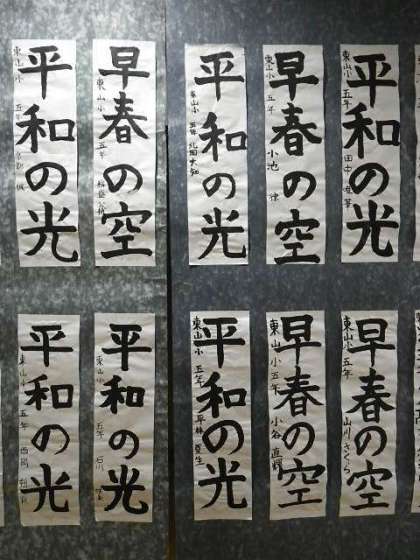 平和の光
東山小 五年
早春の空
東山小 五年
平和の光
東山小 五年 北田大知
早春の空
東山小 五年 小池 律
平和の光
東山小 五年 田中
平和の光
東山小 五年 西岡
平和の光
東山小 五年 石川
平和の光
東山小 五年 平林
早春の空
東山小 五年 小谷 直輝
早春の空
東山小 五年 山川さくら